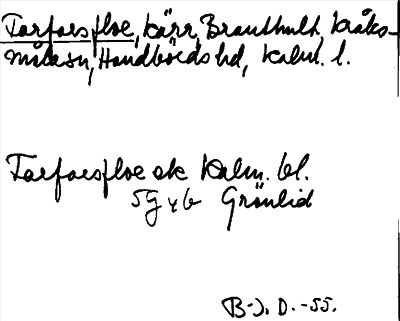 Farfarsfloe, kärr, Branthult, Kråks-
måla sn, Handbörds hd, Kalm. l.
Farfarsfloe ek Kalm. bl.
5G 4b Grönlid
B-J. D. -55.